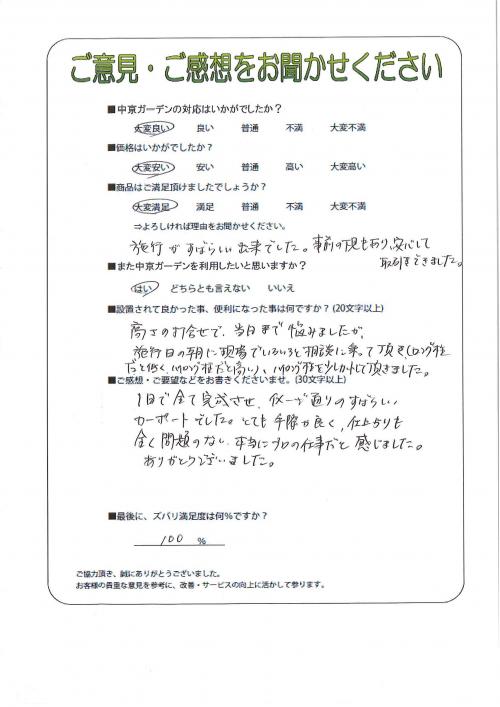 ご意見・ご感想をお聞かせください
■中京ガーデンの対応はいかがでしたか？
大変良い 良い 普通 不満 大変不満
■価格はいかがでしたか？
大変安い 安い 普通 高い 大変高い
■商品はご満足頂けましたでしょうか？
大変満足 満足 普通 不満 大変不満
⇒よろしければ理由をお聞かせください。
施行がすばらしい出来でした。事前の下見もあり、安心して
取引できました。
■また中京ガーデンを利用したいと思いますか？
はい どちらとも言えない いいえ
■設置されて良かった事、便利になった事は何ですか？(20文字以上)
高さの打合せで、当日まで悩みましたが、
施行日の朝に現場でいろいろと相談に乗って頂き(ロング柱
だと低く、ハイロング柱だと高い)、ハイロング柱を少しカットして頂きました。
■ご感想・ご要望などをお書きくださいませ。(30文字以上)
1日で全て完成させ、イメージ通りのすばらしい
カーポートでした。とても手際が良く、仕上りも
全く問題のない、本当にプロの仕事だと感じました。
ありがとうございました。
■最後に、ズバリ満足度は何%ですか？
100 %
ご協力頂き、誠にありがとうございました。
お客様の貴重な意見を参考に、改善・サービスの向上に活かして参ります。